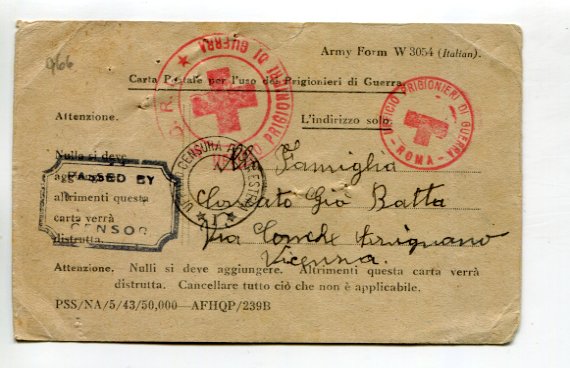 966
Army Form W 3054 (Italian).
Carta Postale per l'uso dei Prigionieri di Guerra
C.R.I. UFFICIO PRIGIONIERI DI GUERRA
UFFICIO PRIGIONIERI DI GUERRA
- ROMA -
Attenzione.
L'indirizzo solo
Nulla si deve
aggiungere
altrimenti questa
carta verrà
distrutta.
PASSED BY
CENSOR
CENSURA ESTERA
Alla Famiglia
Giò Batta
Via Conche
Vicenza.
Attenzione. Nulli si deve aggiungere. Altrimenti questa carta verrà
distrutta. Cancellare tutto ciò che non è applicabile.
PSS/NA/5/43/50,000—AFHQP/239B